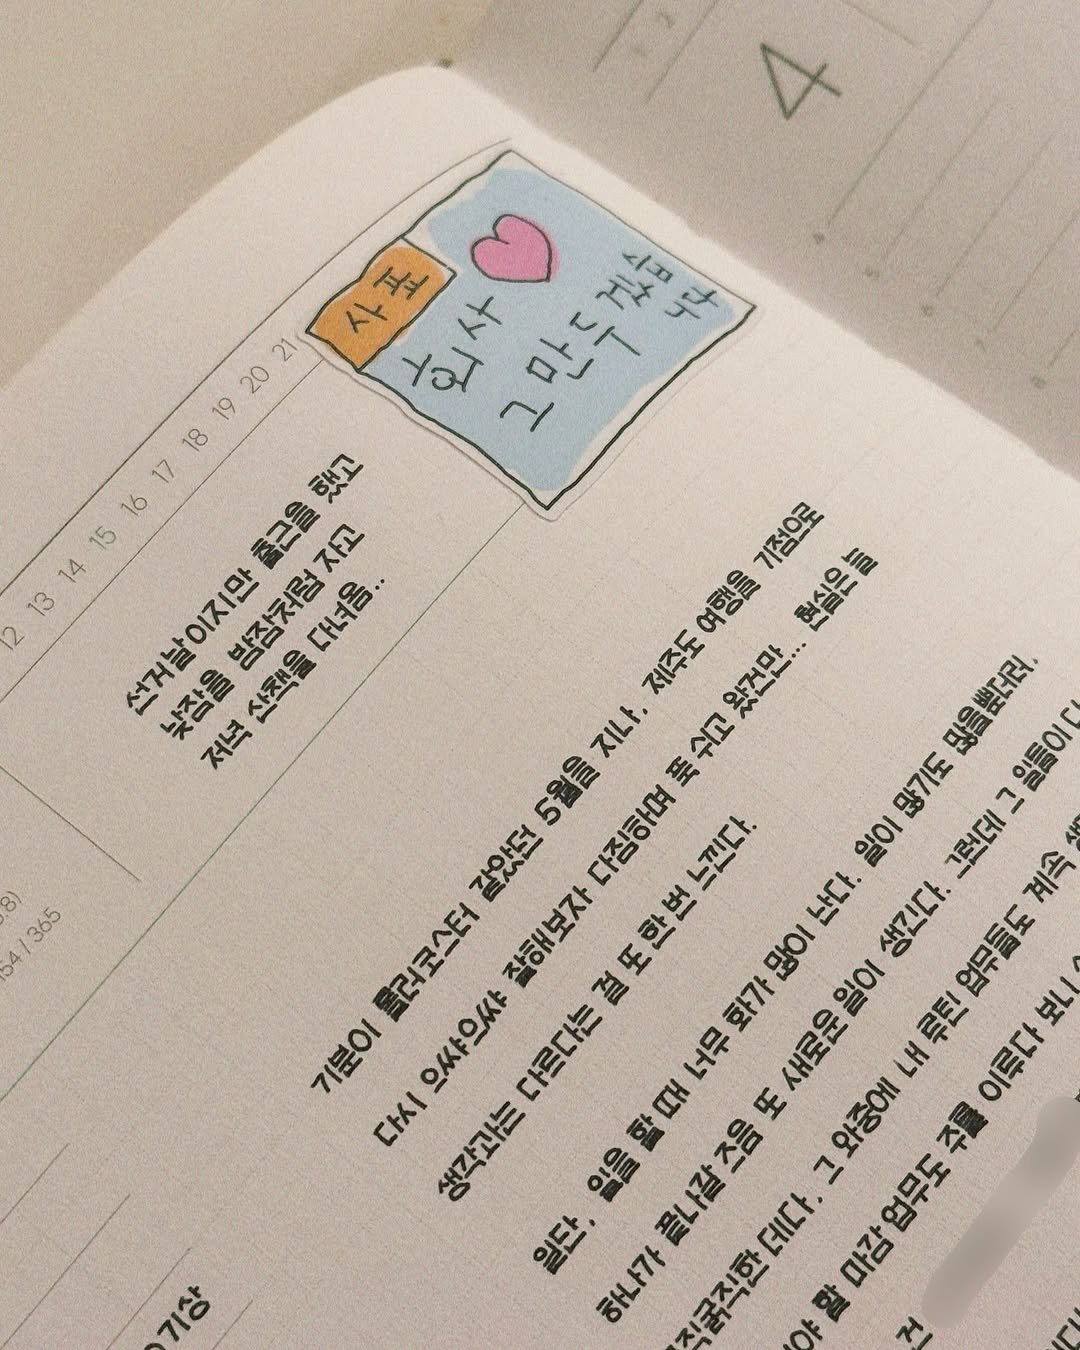 4
사표
회사
그만두
겠습
니다
12 13 14 15 16 17 18 19 20 21
선거날이지만 출근을 했고
낮잠을 밤잠처럼 자고
저녁 산책을 다녀옴..
154 / 365
기분이 롤러코스터 같았던 5월을 지나, 제주도 여행을 기점으로
다시 으쌰으쌰 잘해보자 다짐하며 푹 쉬고 왔건만... 현실은 늘
생각과는 다르다는 걸 또 한 번 느낀다.
일단, 일을 할 때 너무 화가 많이 난다. 일이 많기도 많을뿐더러,
하나가 끝나갈 즈음 또 새로운 일이 생긴다. 그런데 그 일들이
직한 데다, 그 와중에 내 루틴 업무들도 계속
할 마감 업무도 주를 이루다 보니
기상
건